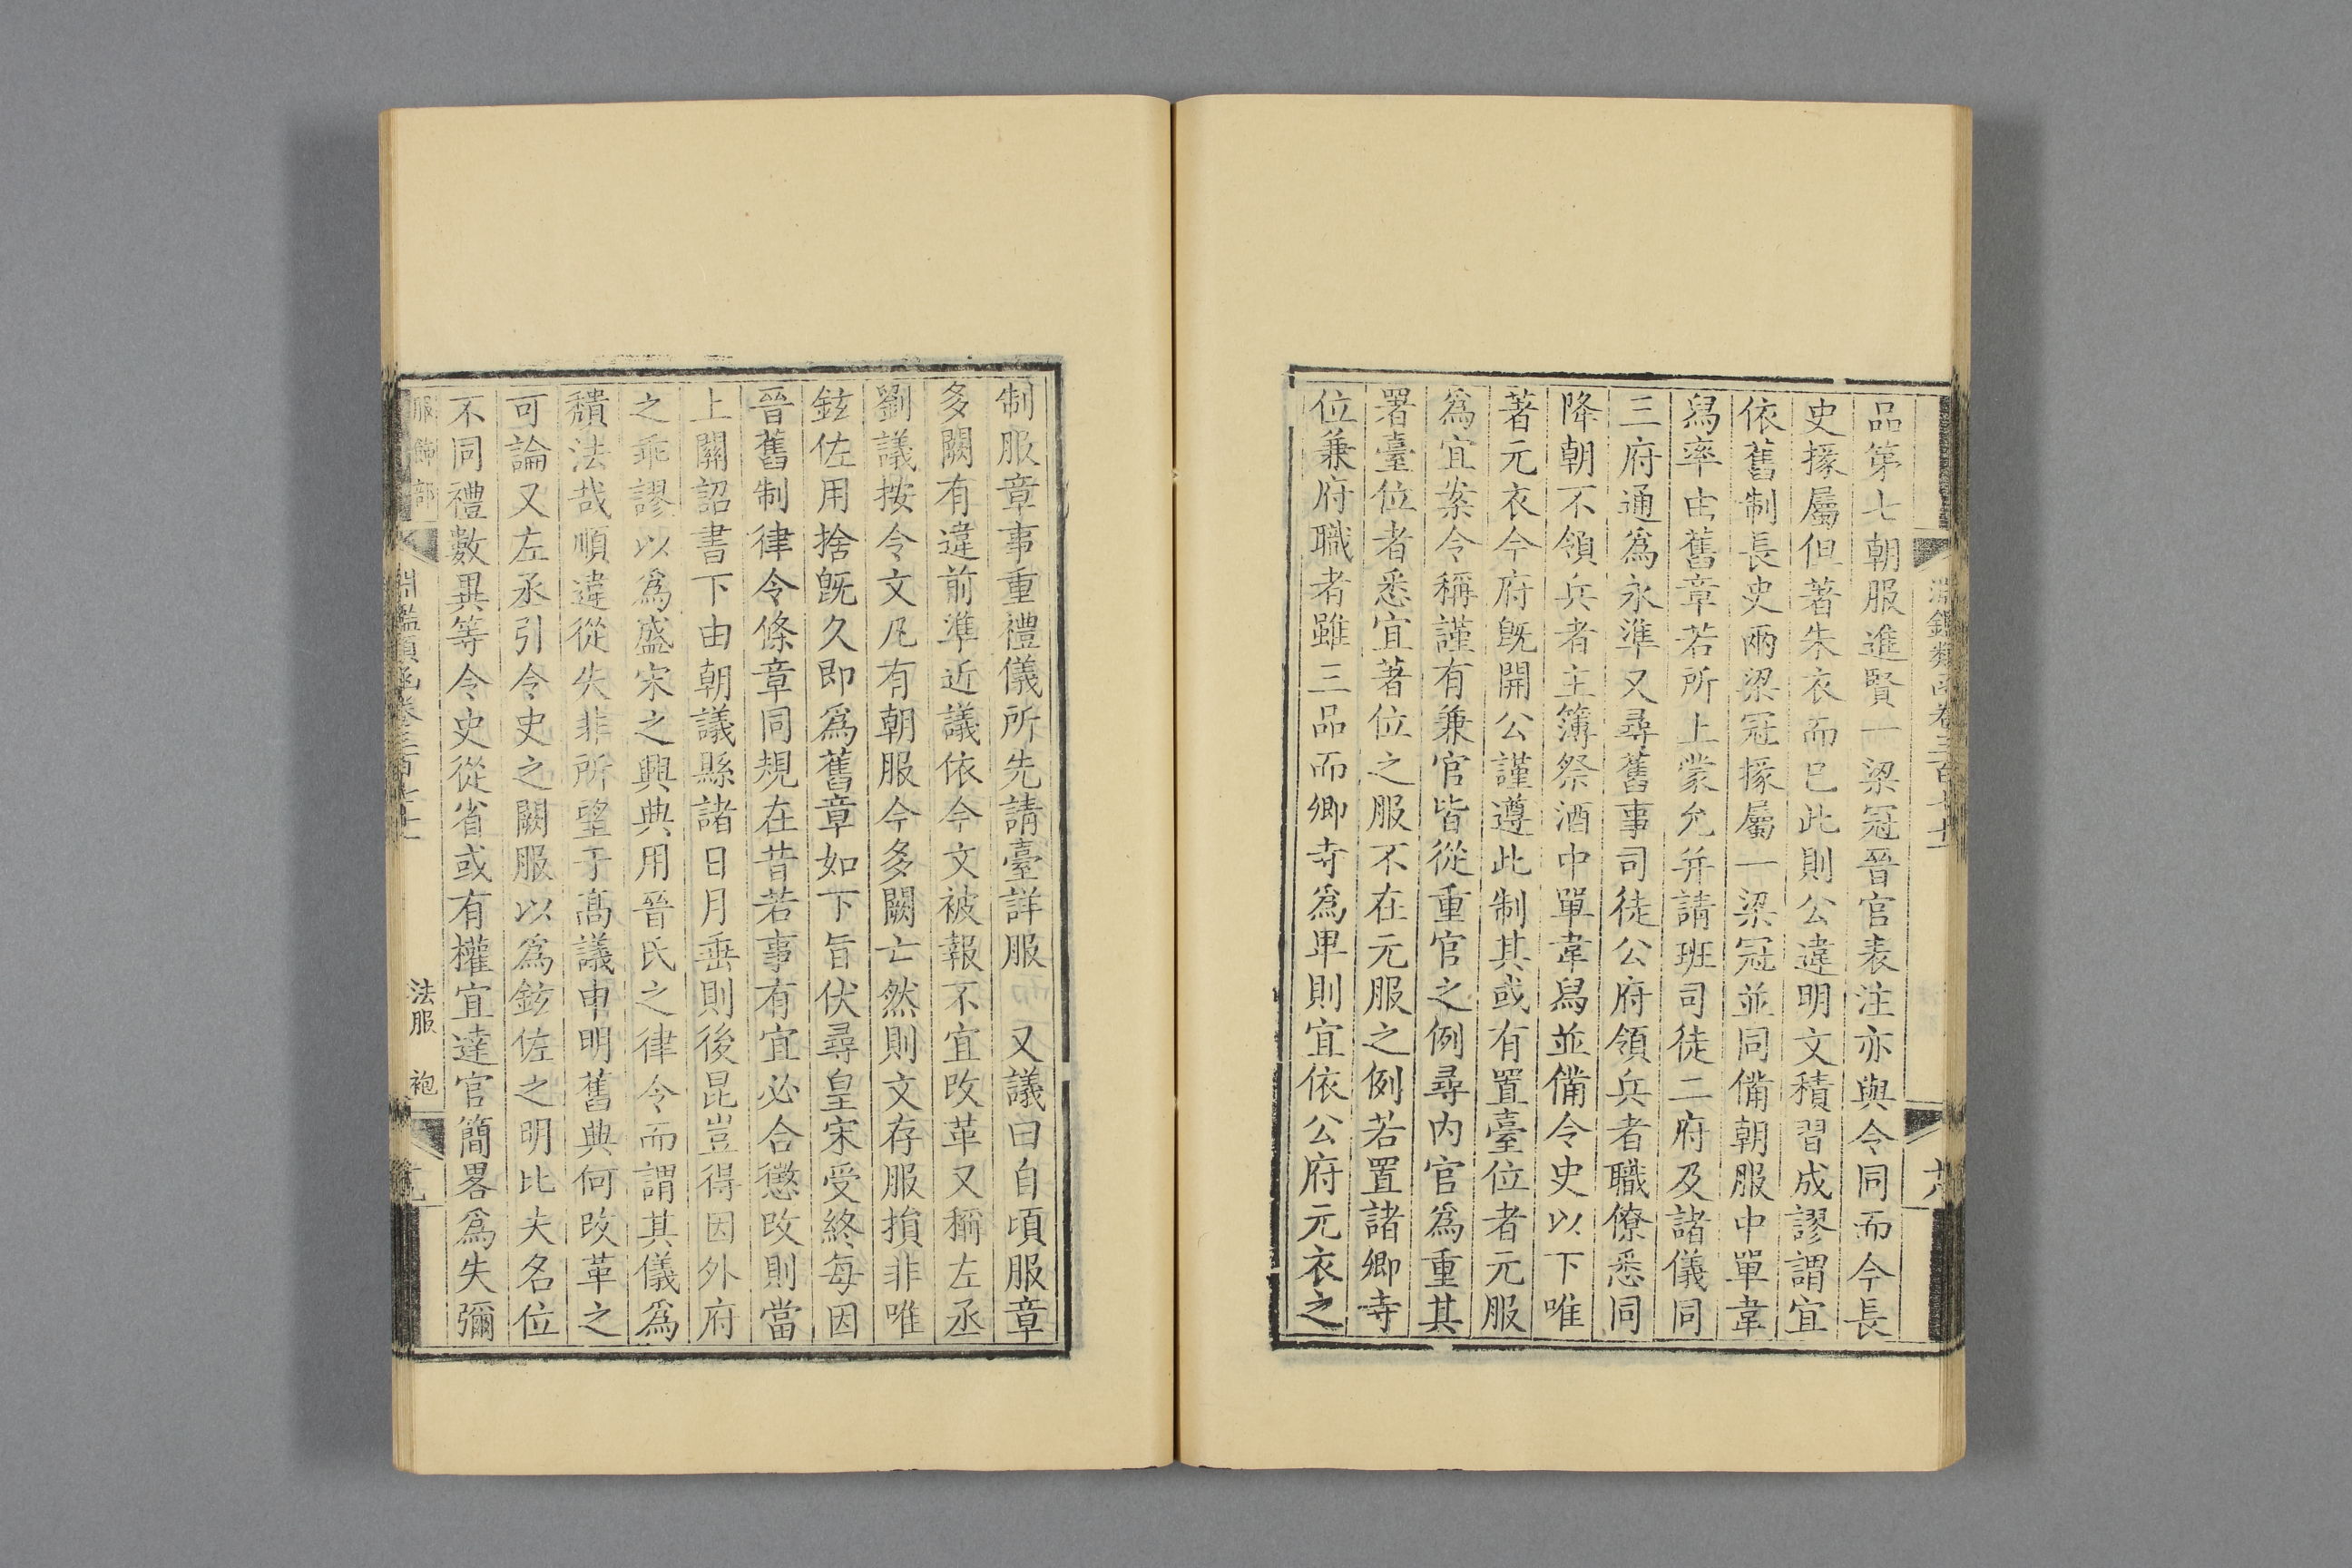 品第七朝服進賢一梁冠晉官表注亦與令同而今長
史掾屬但著朱衣而巳此則公違明文積習成謬謂宜
依舊制長史兩梁冠掾屬一梁冠並同備朝服中單韋
舄率由舊章若所上蒙允并請班司徒二府及諸儀同
三府通爲永準又尋舊事司徒公府領兵者職僚悉同
降朝不領兵者主簿祭酒中單韋舄並備令史以下唯
著元衣今府旣開公謹遵此制其或有置臺位者元服
爲宜案令稱謹有兼官皆從重官之例尋内官爲重其
署臺位者悉宜著位之服不在元服之例若置諸卿寺
位兼府職者雖三品而卿寺爲卑則宜依公府元衣之
制服章事重禮儀所先請臺詳服 又議曰自頃服章
多闕有違前準近議依今文被報不宜改革又稱左丞
劉議按令文凡有朝服今多闕亡然則文存服損非唯
鉉佐用捨旣久即爲舊章如下旨伏尋皇宋受終每因
晉舊制律令條章同規在昔若事有宜必合懲改則當
上關詔書下由朝議縣諸日月垂則後昆豈得因外府
之乖謬以爲盛宋之興典用晉氏之律令而謂其儀爲
穨法哉順違從失非所望于高議申明舊典何改革之
可論又左丞引令史之闕服以爲鉉佐之明比夫名位
不同禮數異等令史從省或有權宜達官簡畧爲失彌
服飾部
淵鑑類函卷三百七十一
法服 袍